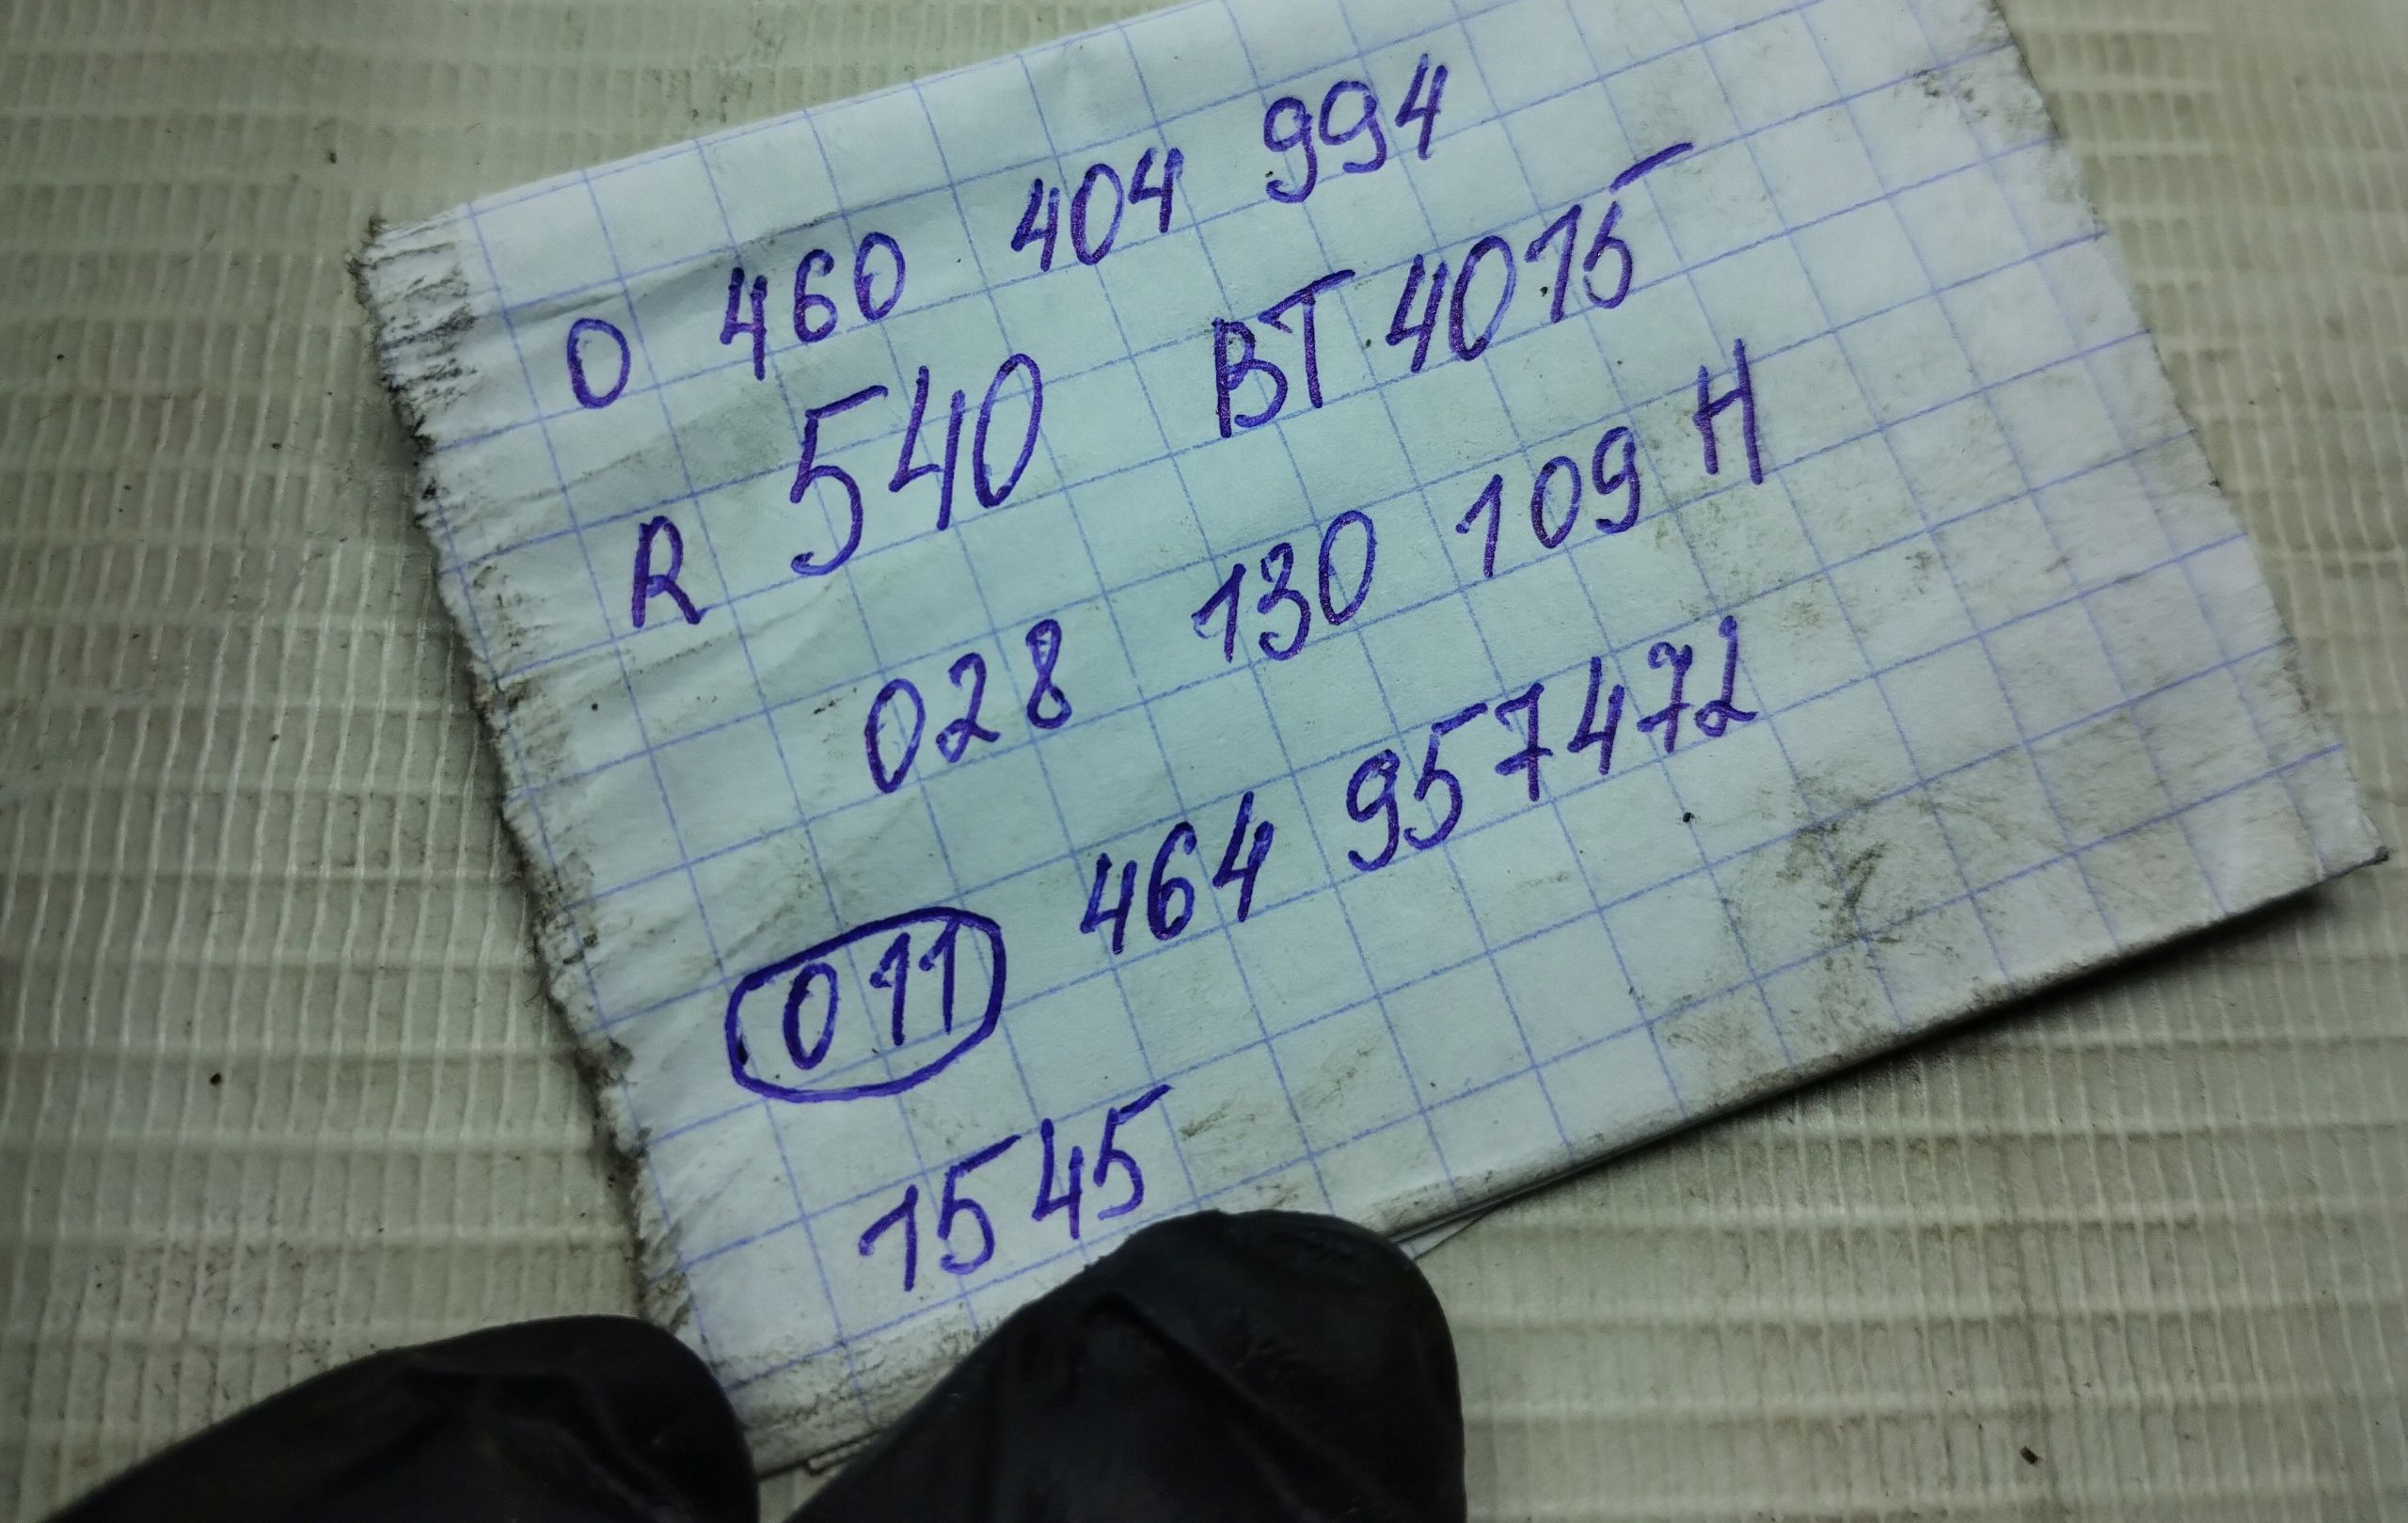 0 460 404 994
R 540 BT 4075
028 130 109 H
011 464 957472
1545